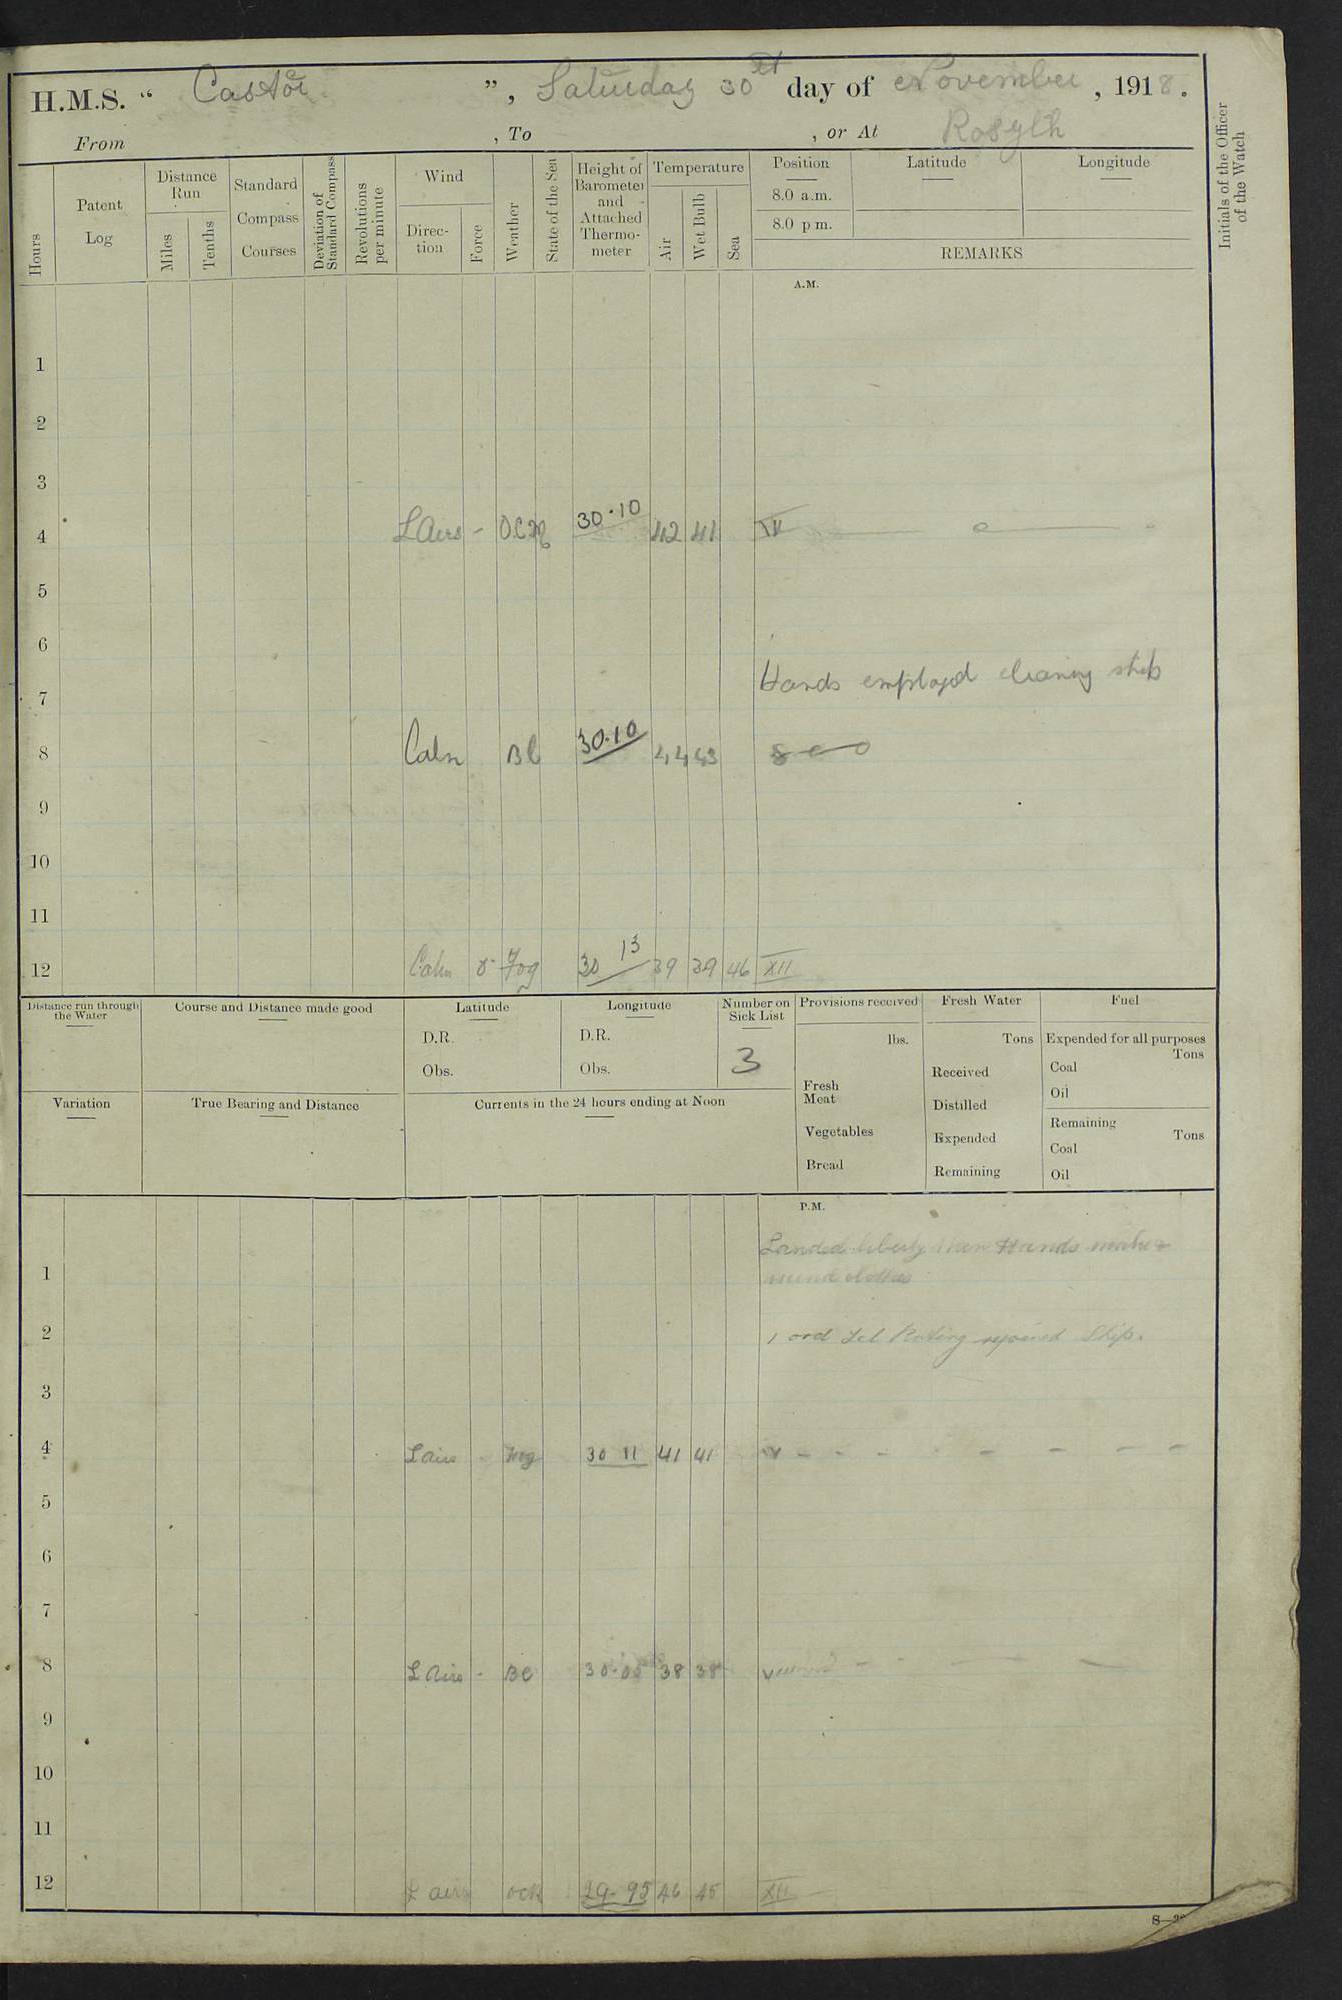 H.M.S. “ Castor ”, Saturday 30th day of November, 1918.
From , To , or At Rosyth
Initials of the Officer of the Watch
Hours
Patent Log
Distance Run
Miles
Tenths
Standard Compass Courses
Deviation of Standard Compass
Revolutions per minute
Wind
Direction
Force
Weather
State of the Sea
Height of Barometer and Attached Thermometer
Temperature
Air
Wet Bulb
Sea
Position
8.0 a.m.
8.0 p m.
Latitude
Longitude
REMARKS
A.M.
1
2
3
4 L Airs - O.C.M 30·10 42 41
5
6
Hands employed cleaning ship
7
8 Calm BC 30·10 44 43
9
10
11
12 Calm 0 Fog 30 13 39 39 46 XII
Distance run through the Water
Course and Distance made good
Latitude
D.R.
Obs.
Longitude
D.R.
Obs.
Number on Sick List
3
Provisions received
lbs.
Fresh Meat
Vegetables
Bread
Fresh Water
Tons
Received
Distilled
Expended
Remaining
Fuel
Expended for all purposes
Tons
Coal
Oil
Remaining
Tons
Coal
Oil
Variation
True Bearing and Distance
Currents in the 24 hours ending at Noon
P.M.
Landed liberty men Hands make &
1 mend clothes
2 1 ord Tel Rating rejoined Ship.
3
4 L airs - Fog 30 11 41 41
5
6
7
8 L Airs - BC 30·05 38 38
9
10
11
12 L airs OCM 29·95 46 45 XII